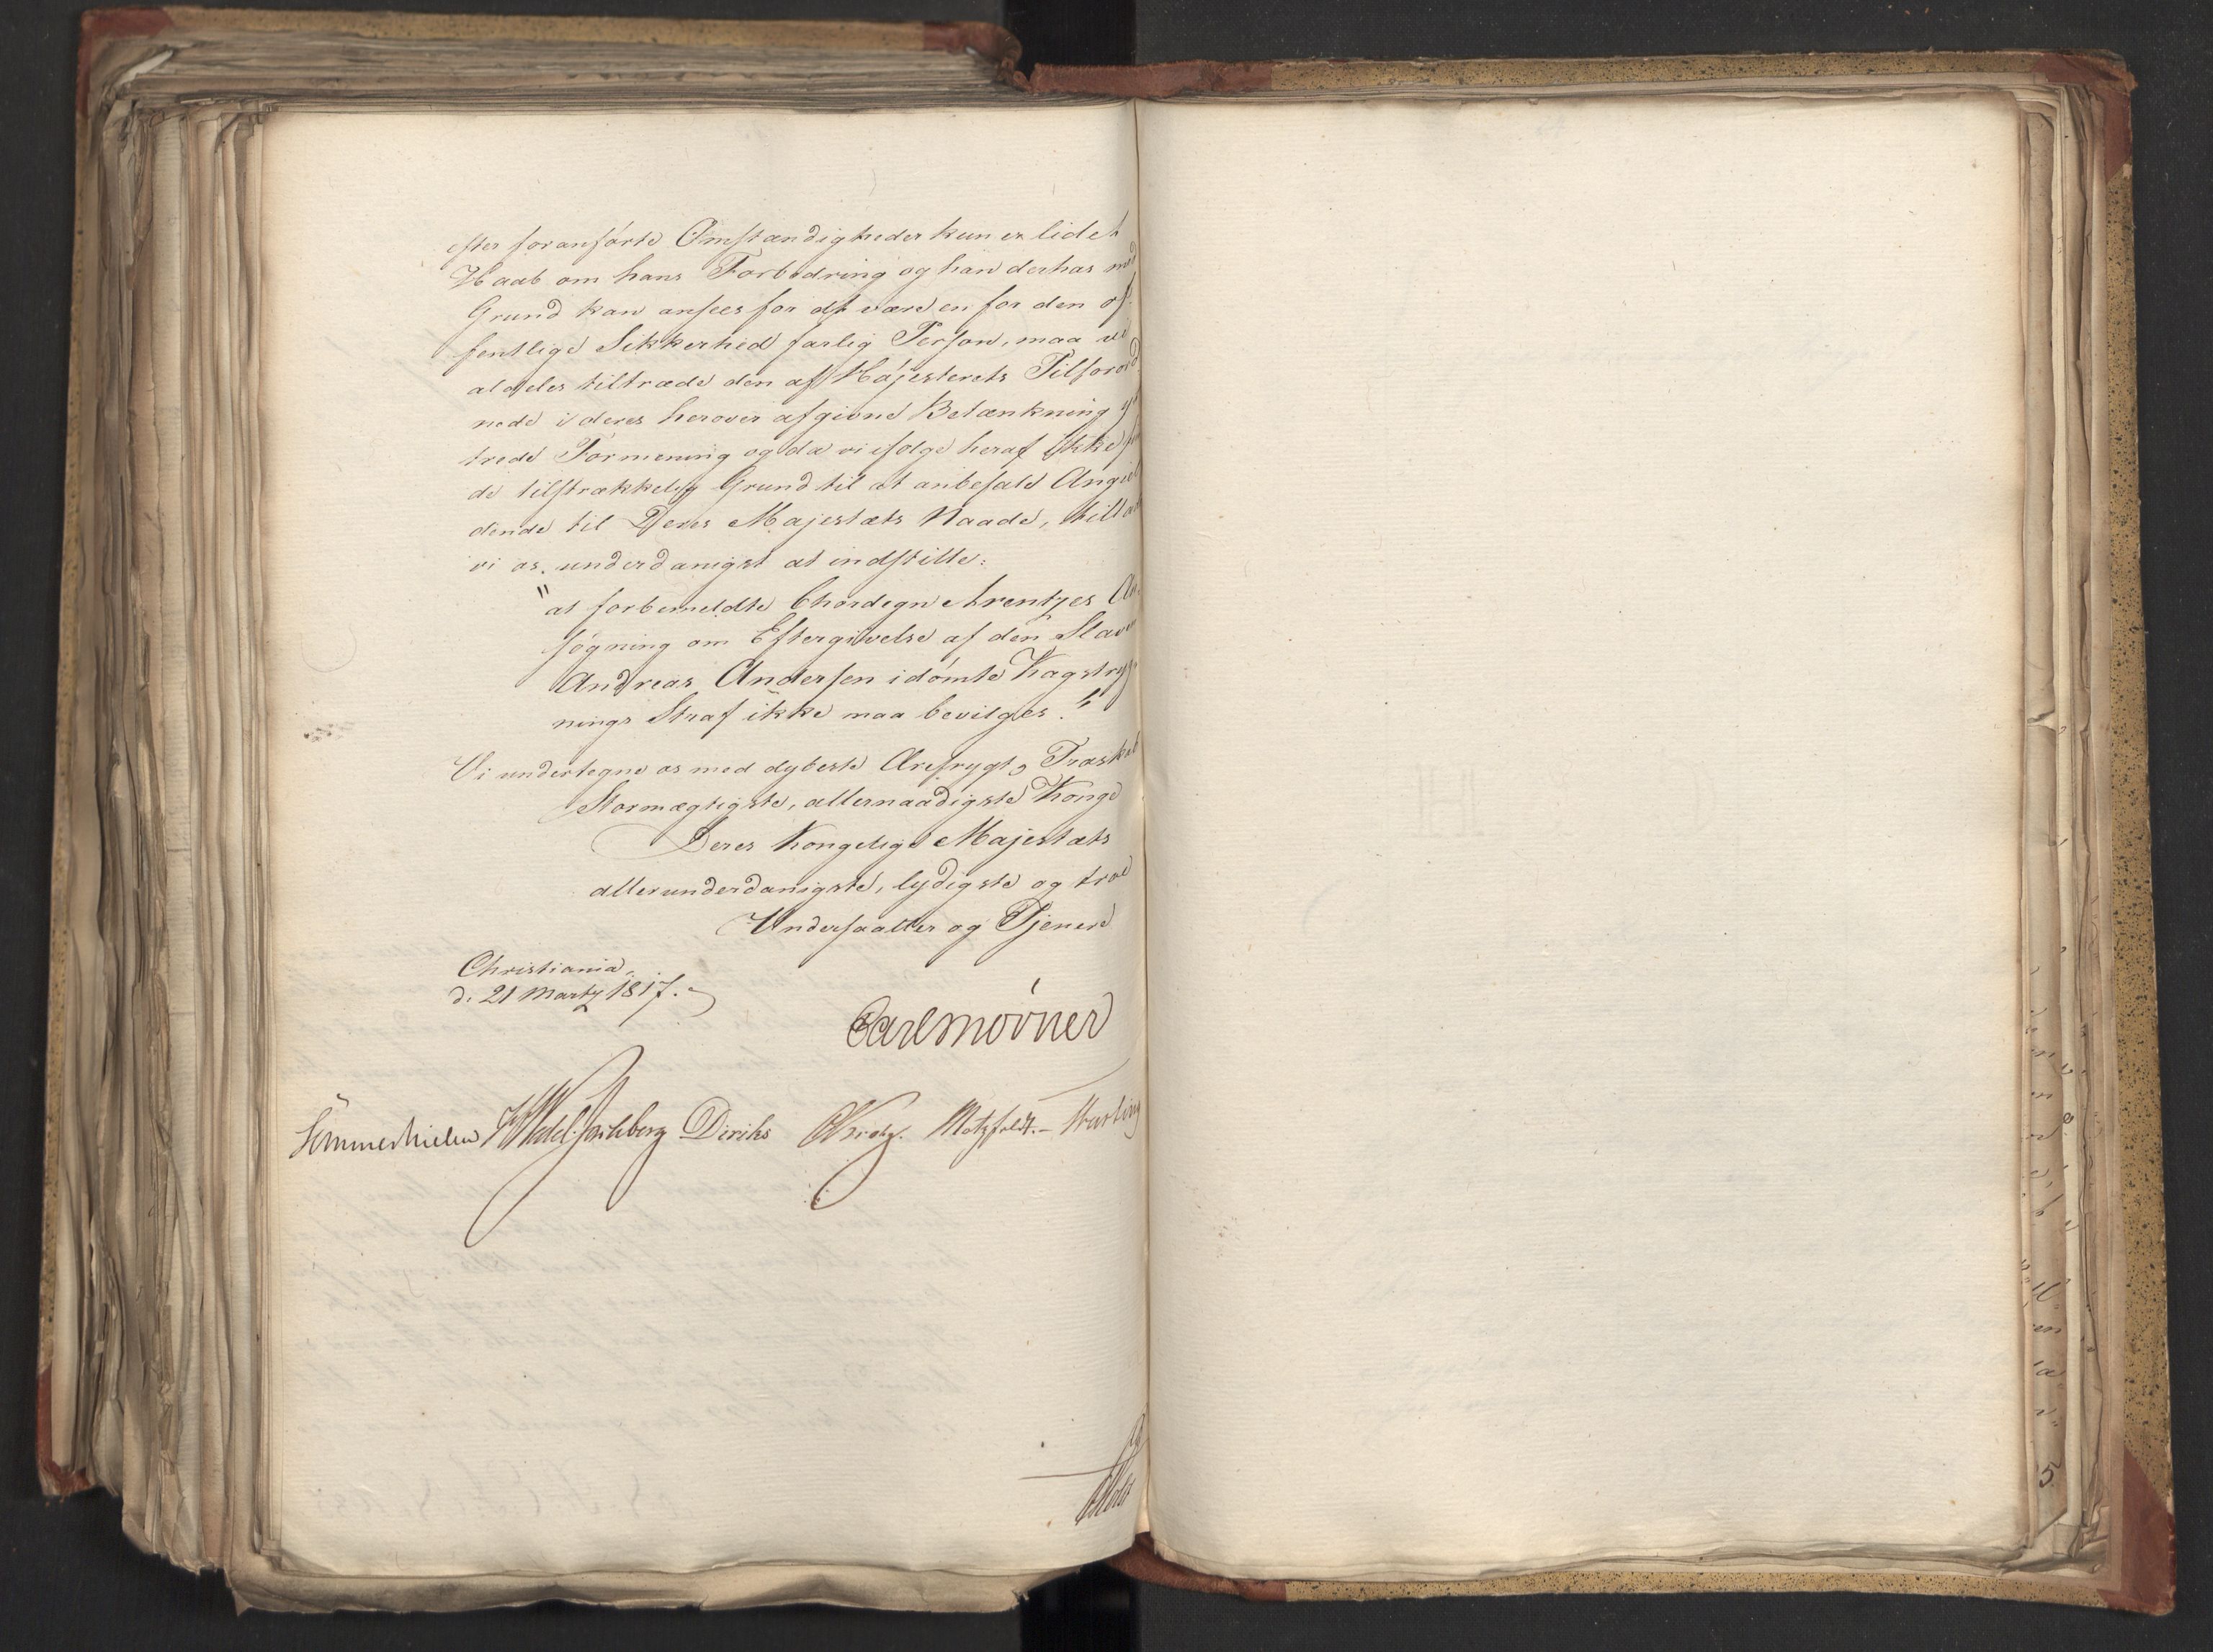 efter foranførte Omstændigheder kun er lidet
Haab om hans Forbedring og han derhos med
Grund kan ansees for at være en for den of-
fentlige Sikkerhed farlig Person, maa vi
aldeles tiltræde den af Høiesterets Tilforord
nede i deres herover afgivne Betænkning yt
trede Formening og da vi ifølge heraf ikke fin
de tilstrækkelig Grund til at anbefale Angiel
dende til Deres Majestæts Naade, tillade
vi os underdanigst at indstille:
"at forbemeldte Chordegn Arentzes An-
søgning om Eftergivelse af den Slaven
Andreas Andersen idømte Kagstryg-
nings Straf ikke maa bevilges."
Vi undertegne os med dybeste Ærefrygt, Troskab
Stormægtigste, allernaadigste Konge
Deres Kongelige Majestæts
allerunderdanigste, lydigste og troe
Undersaatter og Tjenere
Christiania,
d: 21 Martz 1817.
Carl Mörner
Sommerhielm HWedel Jarlsberg Diriks Krog. Motzfeldt.-